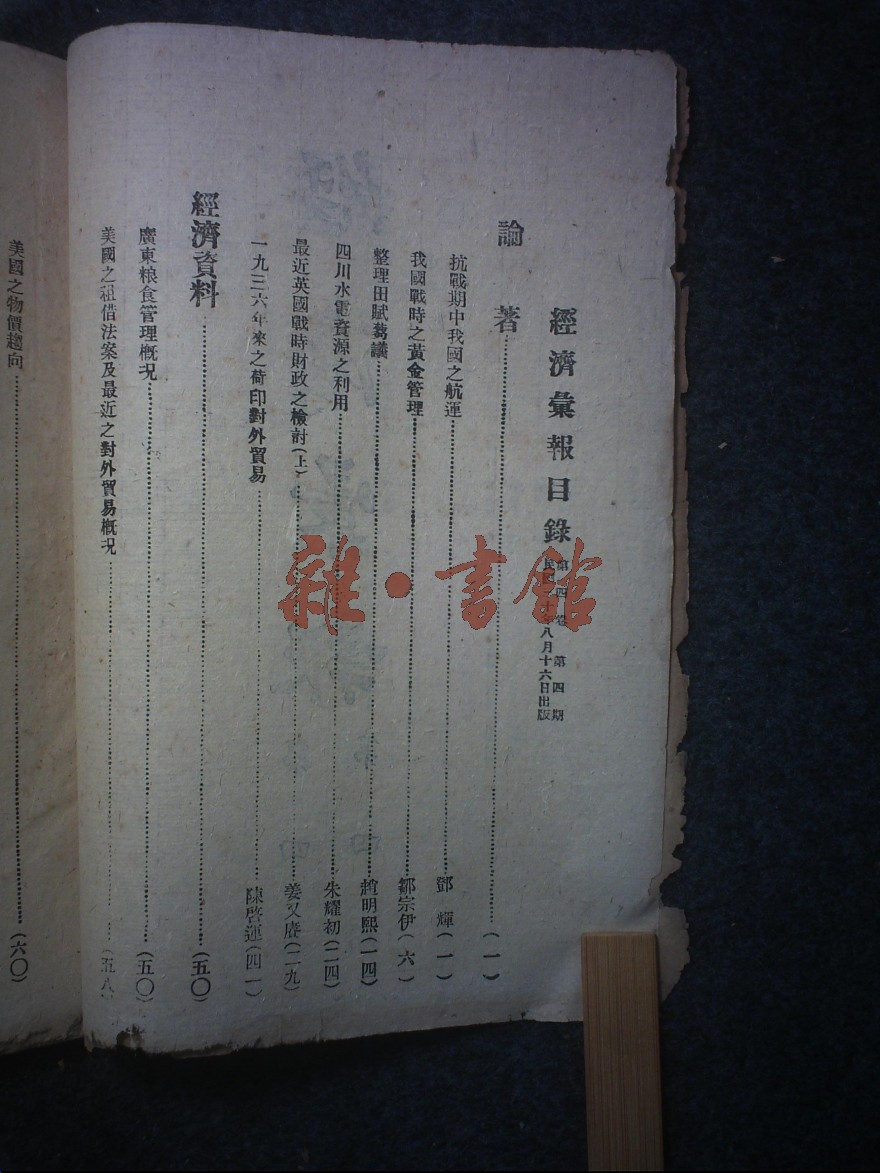 經濟彙報目錄
第四卷 第四期
民國三十年八月十六日出版
論著……(一)
抗戰期中我國之航運……鄧輝(一)
我國戰時之黃金管理……鄒宗伊(六)
整理田賦芻議……趙明熙(一四)
四川水電資源之利用……朱耀初(二四)
最近英國戰時財政之檢討(上)……姜又賡(二九)
一九三六年來之荷印對外貿易……陳啓運(四一)
經濟資料……(五〇)
廣東粮食管理概況……(五〇)
美國之租借法案及最近之對外貿易概況……(五八)
美國之物價趨向……(六〇)
雜·書館